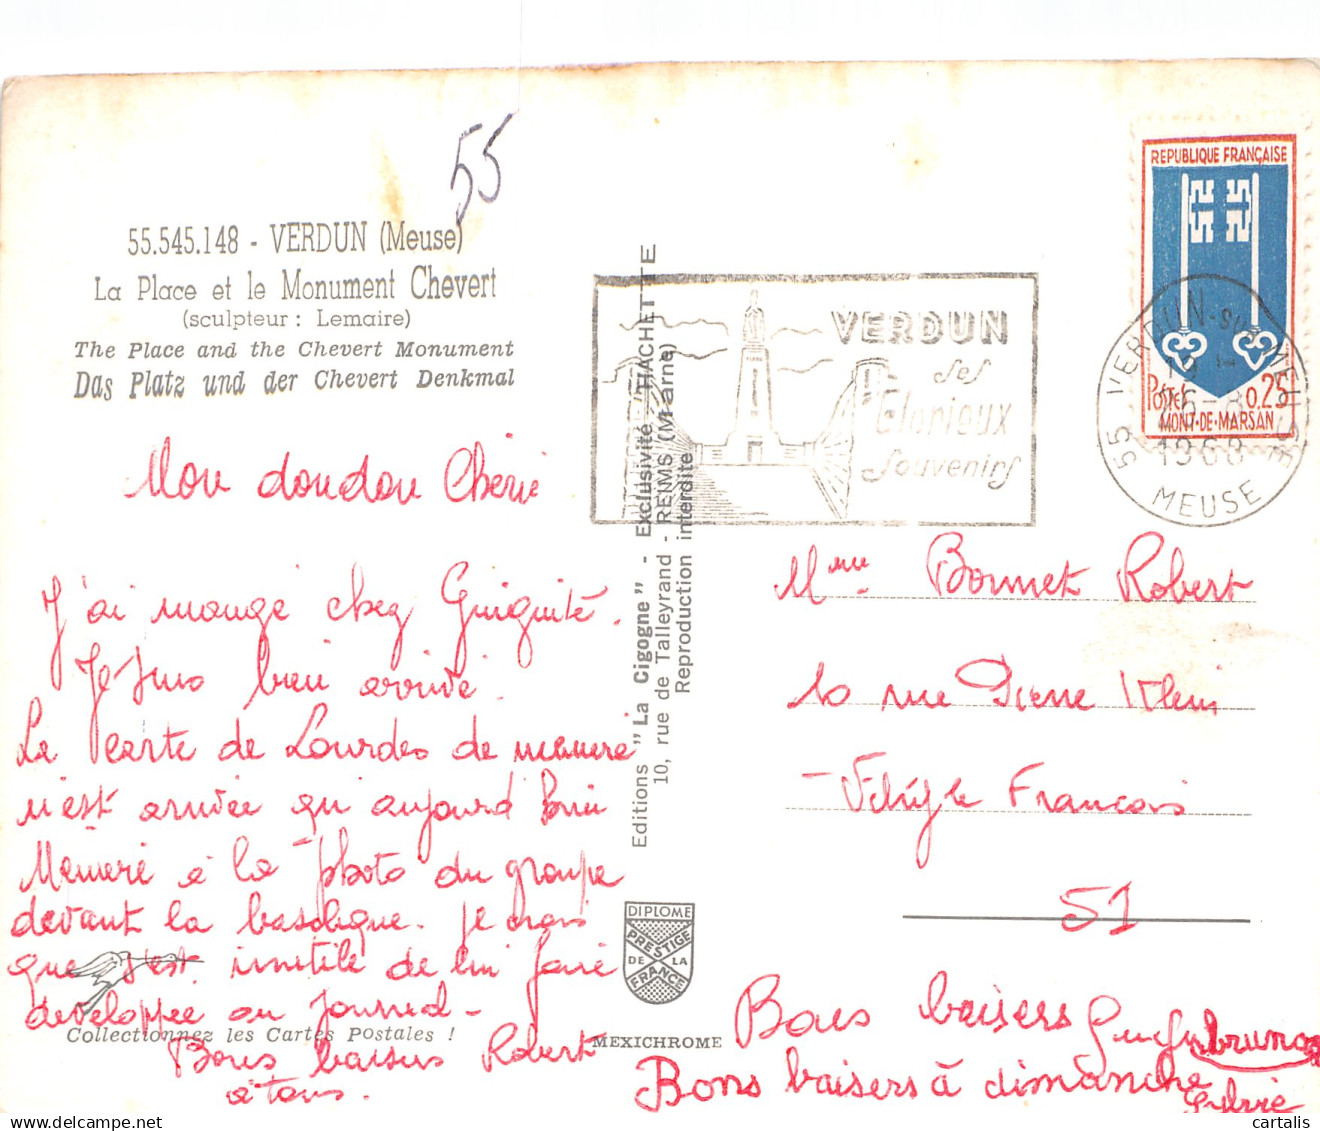 55
55.545.148 - VERDUN (Meuse)
La Place et le Monument Chevert
(sculpteur : Lemaire)
The Place and the Chevert Monument
Das Platz und der Chevert Denkmal
Mon doudou Chérie
J'ai mangé chez Guiguite.
Je suis bien arrivé.
La carte de Lourdes de mémère
n'est arrivée qu'aujourd'hui
Mémère a la photo du groupe
devant la basilique. Je crois
que c'est inutile de lui faire
développée au journal-
Bons baisers Robert
à tous.
Collectionnez les Cartes Postales !
Editions "La Cigogne" - Exclusivité HACHETTE
10, rue de Talleyrand - REIMS (Marne)
Reproduction interdite
DIPLOME
PRESTIGE
DE LA
FRANCE
MEXICHROME
VERDUN
ses
Glorieux
Souvenirs
REPUBLIQUE FRANÇAISE
Postes 0,25
MONT-DE-MARSAN
55 VERDUN-SUR-MEUSE
1968
MEUSE
Mme Bonnet Robert
10 rue Pierre Klein
Vitry le Francois
51
Bons baisers
bruno
Bons baisers à dimanche
Sylvie
cartalis
delcampe.net